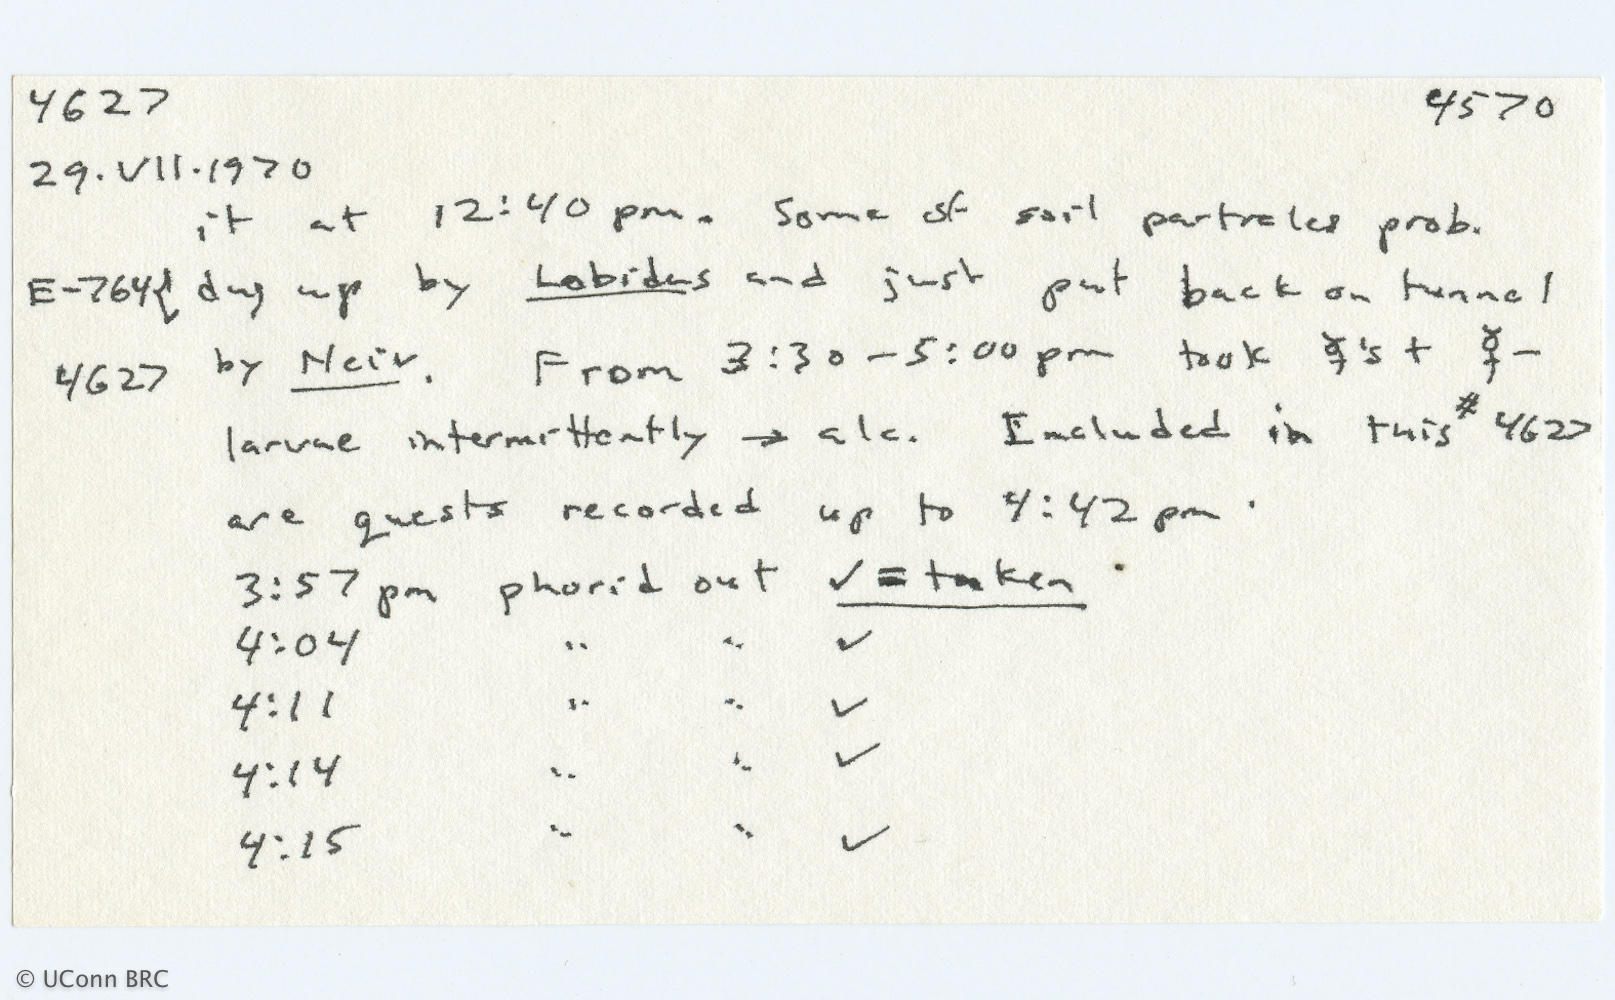 4627 4570
29.VII.1970
it at 12:40 pm. Some of soil particles prob.
E-764{ dug up by Labidus and just put back on tunnel
4627 by Neiv. From 3:30-5:00 pm took ☿'s + ☿-
larvae intermittently → alc. Included in this # 4627
are guests recorded up to 4:42 pm.
3:57 pm phorid out ✓ = taken
4:04 " " ✓
4:11 " " ✓
4:14 " " ✓
4:15 " " ✓
© UConn BRC